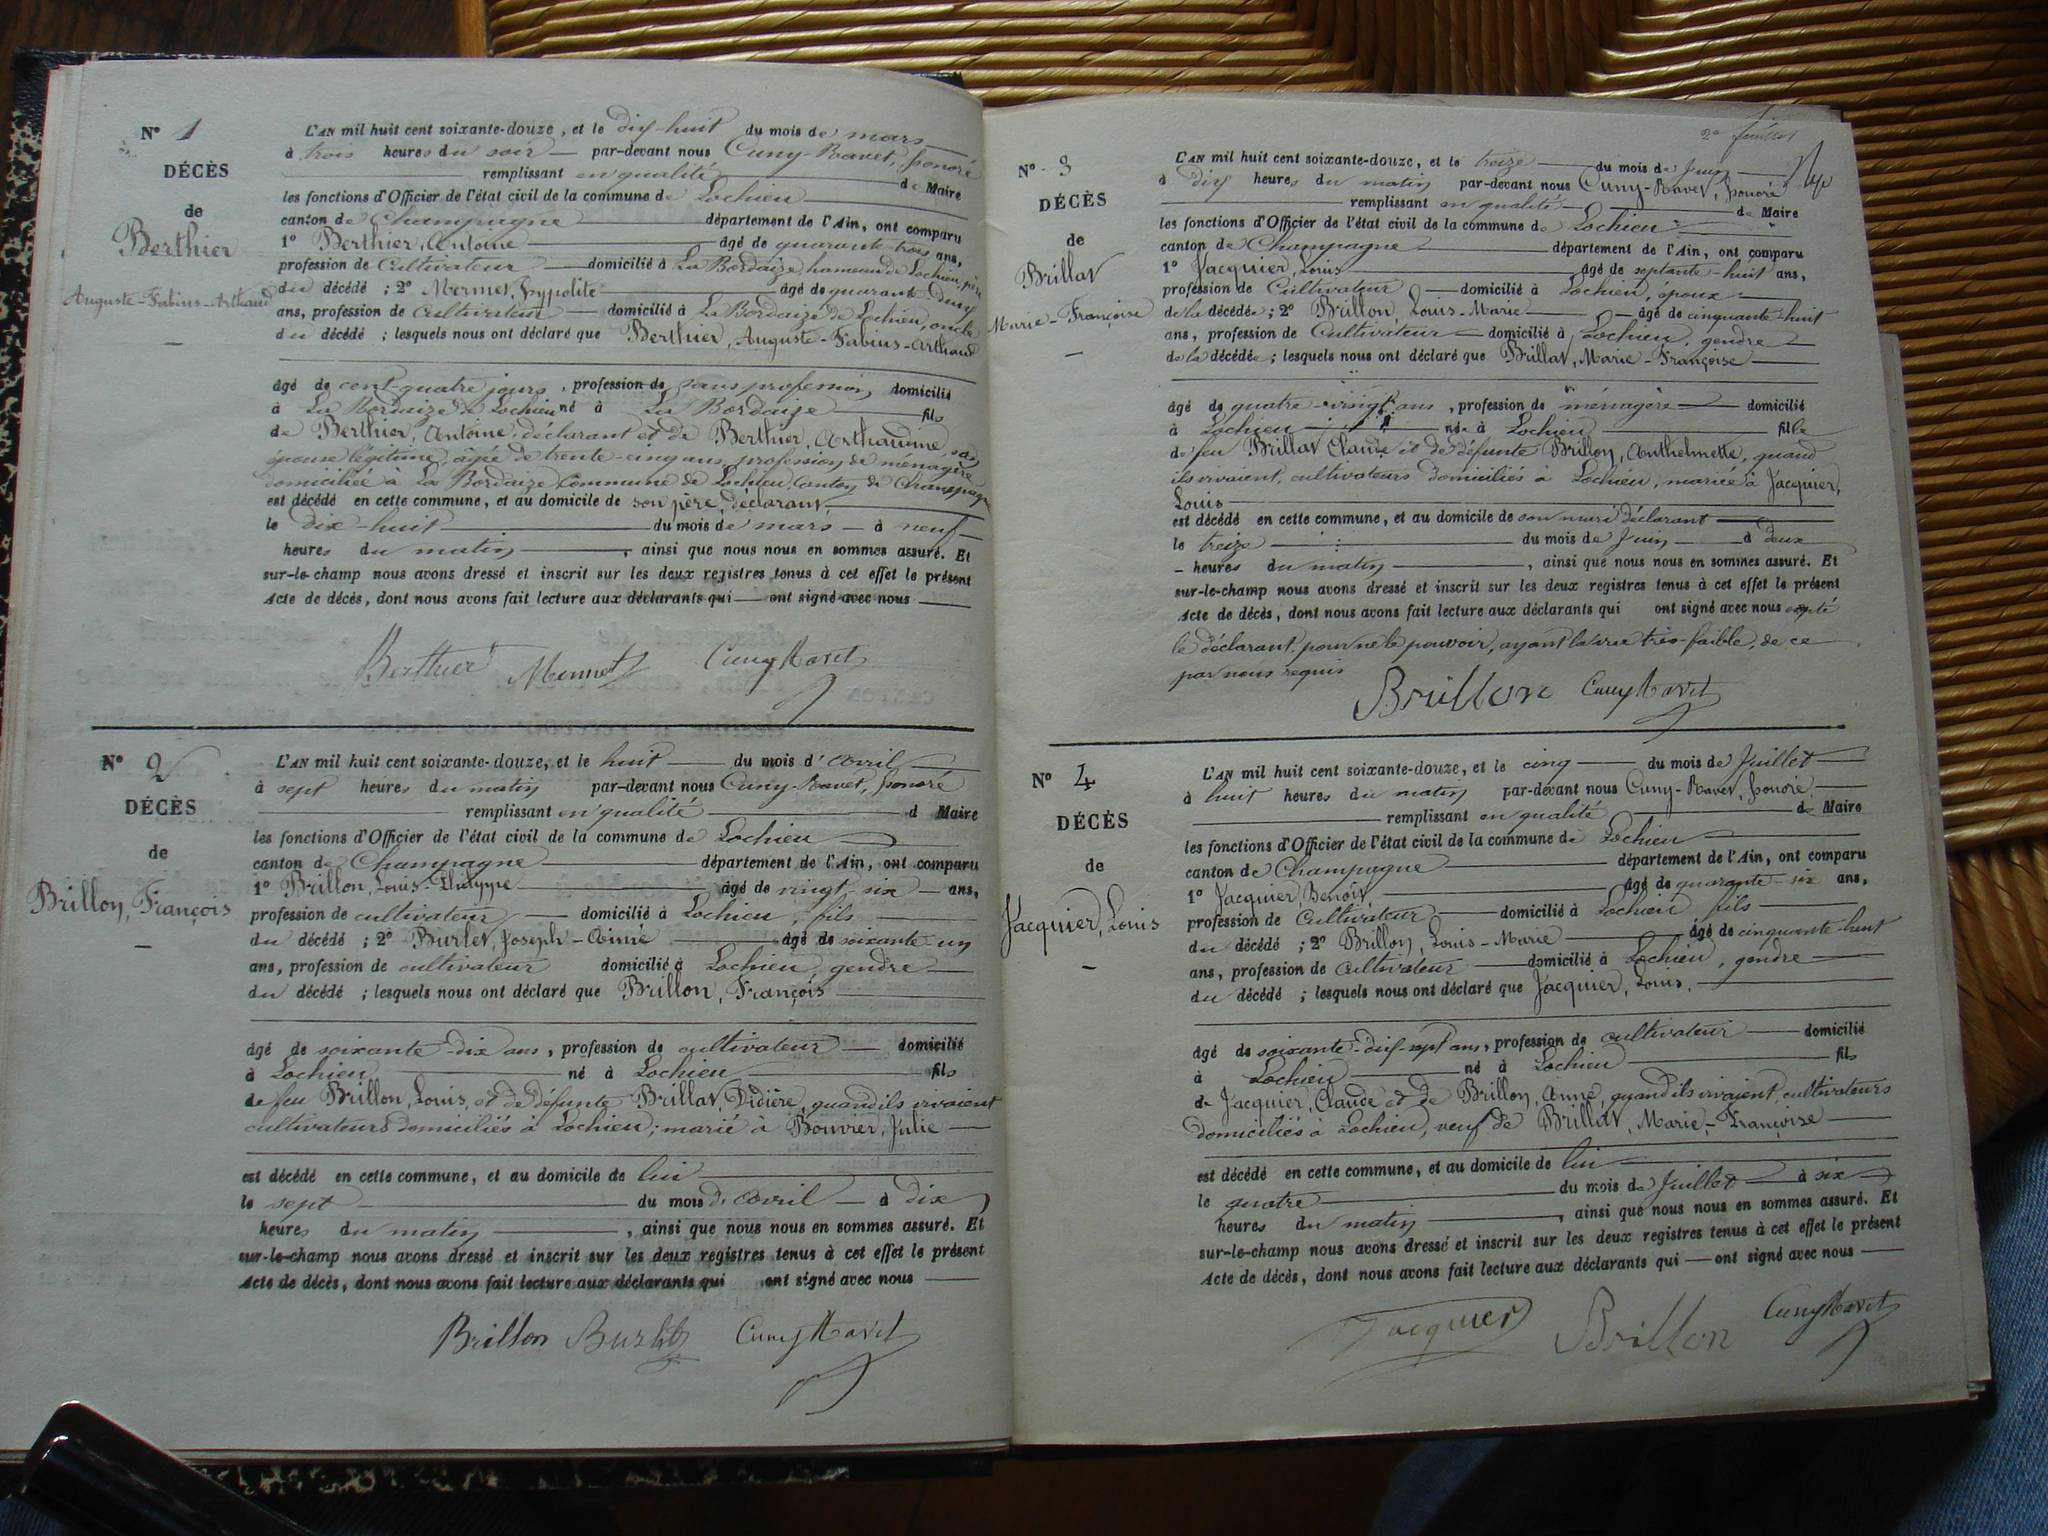 N° 1
DÉCÈS
de
Berthier
Auguste-Fabius-Arthaud
L'AN mil huit cent soixante-douze, et le dix-huit du mois de mars
à trois heures du soir par-devant nous Cuny-Ravet, honoré
remplissant en qualité de Maire
les fonctions d'Officier de l'état civil de la commune de Lochieu
canton de Champagne département de l'Ain, ont comparu
1° Berthier, Antoine âgé de quarante-trois ans,
profession de Cultivateur domicilié à La Bordaize, hameau de Lochieu, père
du décédé ; 2° Mermet, hypolite âgé de quarante-deux
ans, profession de cultivateur domicilié à La Bordaize de Lochieu, oncle
du décédé ; lesquels nous ont déclaré que Berthier, Auguste-Fabius-Arthaud
âgé de cent-quatre jours, profession de sans profession domicilié
à La Bordaize de Lochieu né à La Bordaize fils
de Berthier, Antoine, déclarant et de Berthier, Arthaudine, son
épouse légitime, âgée de trente-cinq ans, profession de ménagère
domiciliée à La Bordaize Commune de Lochieu, Canton de Champagne
est décédé en cette commune, et au domicile de son père, déclarant,
le dix-huit du mois de mars à neuf
heures du matin, ainsi que nous nous en sommes assuré. Et
sur-le-champ nous avons dressé et inscrit sur les deux registres tenus à cet effet le présent
Acte de décès, dont nous avons fait lecture aux déclarants qui ont signé avec nous
Berthier Mermet CunyRavet
N° 2
DÉCÈS
de
Brillon, François
L'AN mil huit cent soixante-douze, et le huit du mois d'avril
à sept heures du matin par-devant nous Cuny-Ravet, honoré
remplissant en qualité d Maire
les fonctions d'Officier de l'état civil de la commune de Lochieu
canton de Champagne département de l'Ain, ont comparu
1° Brillon, Louis-Philippe âgé de vingt six ans,
profession de cultivateur domicilié à Lochieu, fils
du décédé ; 2° Burlet, Joseph-Aimé âgé de soixante un
ans, profession de cultivateur domicilié à Lochieu, gendre
du décédé ; lesquels nous ont déclaré que Brillon, François
âgé de soixante-dix ans, profession de cultivateur domicilié
à Lochieu né à Lochieu fils
de feu Brillon, Louis, et de défunte Brillat, Didière, quand ils vivaient
cultivateurs domiciliés à Lochieu ; marié à Bouvier, Julie
est décédé en cette commune, et au domicile de lui
le sept du mois d'avril à dix
heures du matin, ainsi que nous nous en sommes assuré. Et
sur-le-champ nous avons dressé et inscrit sur les deux registres tenus à cet effet le présent
Acte de décès, dont nous avons fait lecture aux déclarants qui ont signé avec nous
Brillon Burlet CunyRavet
2e feuillet
N° 3
DÉCÈS
de
Brillat
Marie-Françoise
L'AN mil huit cent soixante-douze, et le treize du mois de Juin
à dix heures du matin par-devant nous Cuny-Ravet, honoré
remplissant en qualité de Maire
les fonctions d'Officier de l'état civil de la commune de Lochieu
canton de Champagne département de l'Ain, ont comparu
1° Jacquier, Louis âgé de septante-huit ans,
profession de Cultivateur domicilié à Lochieu, époux
de la décédée ; 2° Brillon, Louis-Marie âgé de cinquante-huit
ans, profession de Cultivateur domicilié à Lochieu, gendre
de la décédée ; lesquels nous ont déclaré que Brillat, Marie-Françoise
âgé de quatre-vingt ans, profession de ménagère domicilié
à Lochieu née à Lochieu fille
de feu Brillat Claude et de défunte Brillon, Anthelmette, quand
ils vivaient, cultivateurs domiciliés à Lochieu, mariée à Jacquier,
Louis
est décédé en cette commune, et au domicile de son mari déclarant
le treize du mois de Juin à deux
heures du matin, ainsi que nous nous en sommes assuré. Et
sur-le-champ nous avons dressé et inscrit sur les deux registres tenus à cet effet le présent
Acte de décès, dont nous avons fait lecture aux déclarants qui ont signé avec nous excepté
le déclarant, pour ne le pouvoir, ayant la vue très-faible, de ce
par nous requis
Brillon CunyRavet
N° 4
DÉCÈS
de
Jacquier, Louis
L'AN mil huit cent soixante-douze, et le cinq du mois de Juillet
à huit heures du matin par-devant nous Cuny-Ravet, honoré,
remplissant en qualité de Maire
les fonctions d'Officier de l'état civil de la commune de Lochieu
canton de Champagne département de l'Ain, ont comparu
1° Jacquier, Benoit, âgé de quarante-six ans,
profession de Cultivateur domicilié à Lochieu, fils
du décédé ; 2° Brillon, Louis-Marie âgé de cinquante-huit
ans, profession de Cultivateur domicilié à Lochieu, gendre
du décédé ; lesquels nous ont déclaré que Jacquier, Louis,
âgé de soixante-dix-sept ans, profession de cultivateur domicilié
à Lochieu né à Lochieu fils
de Jacquier, Claude et de Brillon, Anne, quand ils vivaient, cultivateurs
domiciliés à Lochieu, veuf de Brillat, Marie-Françoise
est décédé en cette commune, et au domicile de lui
le quatre du mois de Juillet à six
heures du matin, ainsi que nous nous en sommes assuré. Et
sur-le-champ nous avons dressé et inscrit sur les deux registres tenus à cet effet le présent
Acte de décès, dont nous avons fait lecture aux déclarants qui ont signé avec nous
Jacquier Brillon CunyRavet